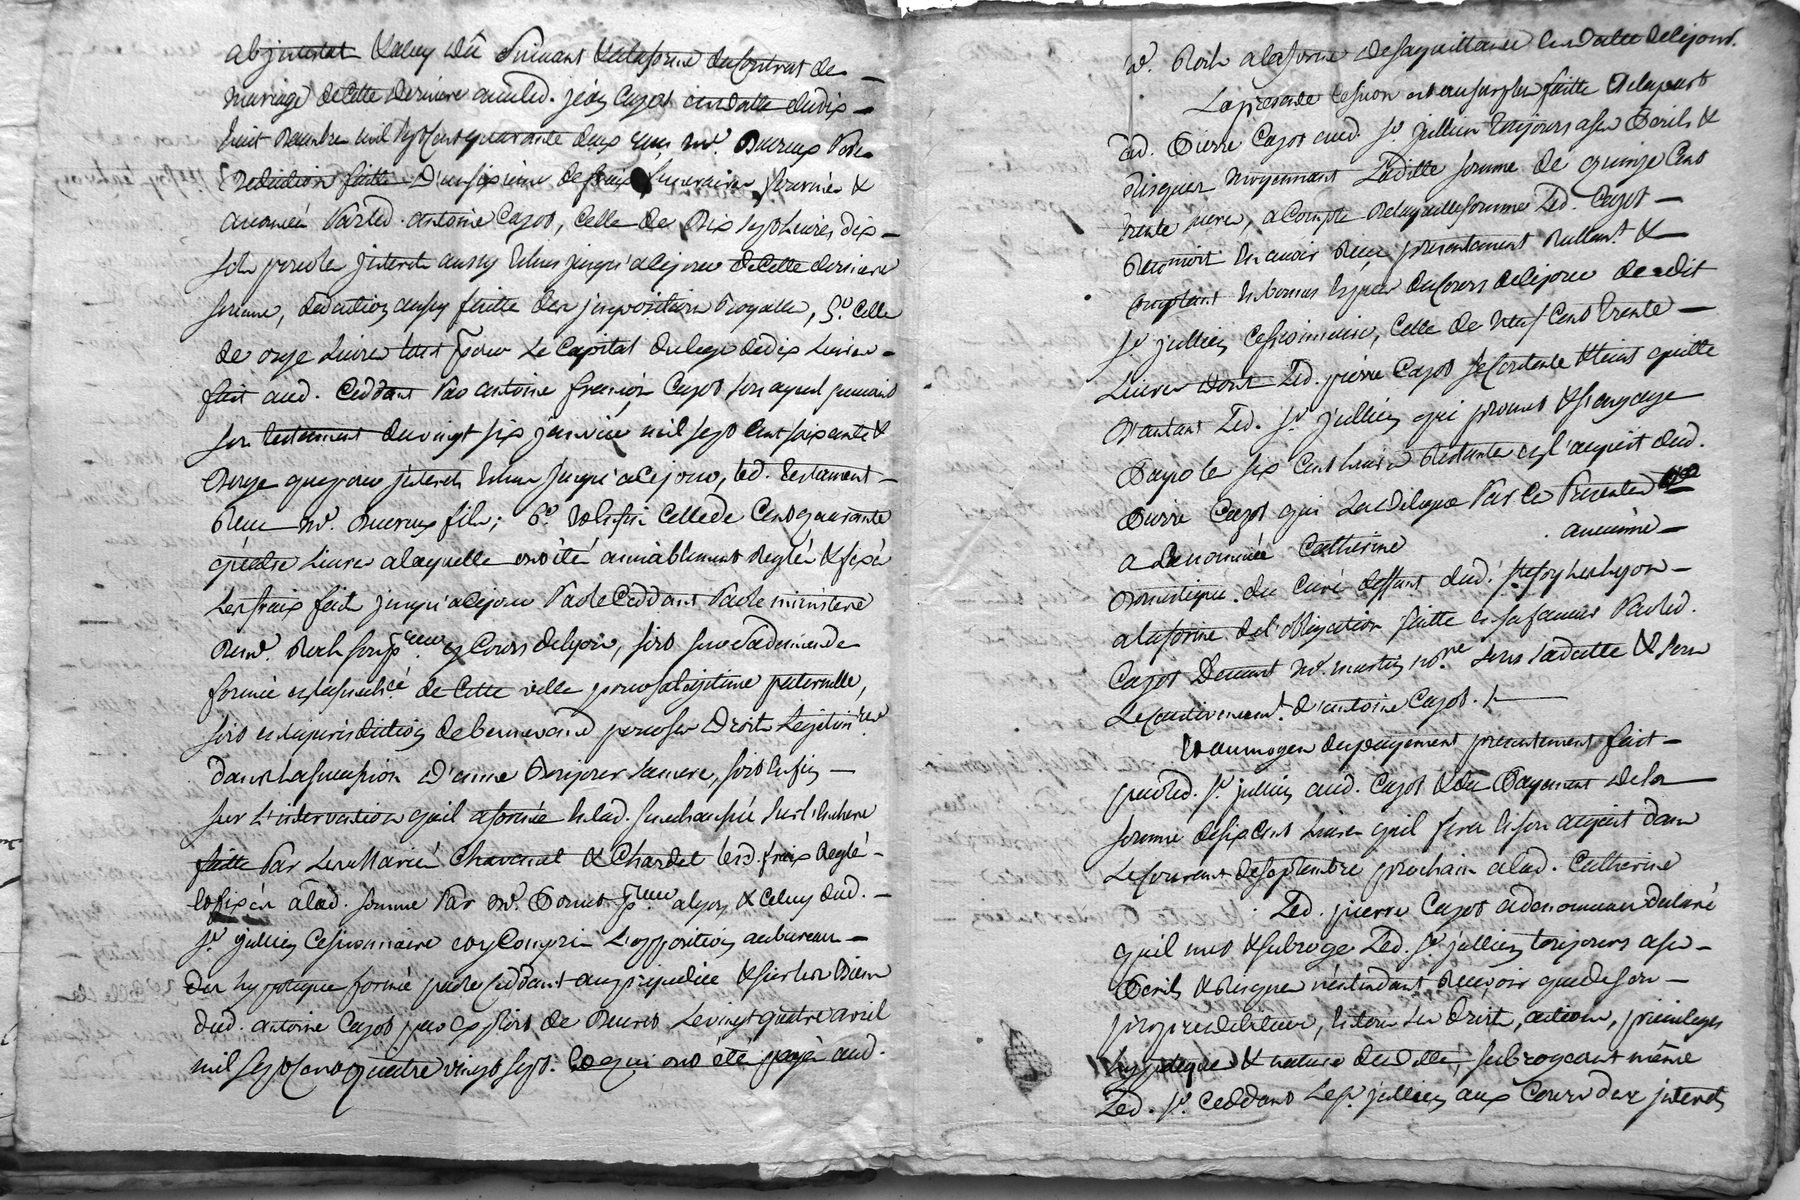 abjntestat & a luy dû suivant & a la forme du Contrat de
mariage de Cette derniere avec led. jean Cazot en datte du dix
huit Decembre mil sept Cent quarante deux reçu me. Ducreux
deduction faitte D'un sixieme de frais funeraires fournis &
avancés Par led. antoine Cazot, Celle de Dix sept Livres dix
sols pour les jnterets aussy Echus jusqu'a ce jour de Cette derniere
somme, déduction aussy faitte des jmpositions Royalles, 5°. Celle
de onze Livres pour Le Capital du legs de dix Livres
fait aud. Ceddant Par antoine françois Cazot son ayeul suivant
son testament du vingt six janvier mil sept Cent soixante &
onze que pour jnterets Echus jusqu'a ce jour, led. testament
Reçu me. Ducreux fils; 6°. & Enfin Celle de Cent quarante
quatre Livres a laquelle ont été amiablement Reglés & fixés
Les frais faits jusqu'a ce jour Par le Ceddant Par le ministere
De me. Roch son preur. es Cours de Lyon, soit sur sa demande
formée en la senechcé. de Cette ville pour sa legitime paternelle,
soit en la jurisdiction de pour ses Droits Legitimres.
dans La succession D'anne sa mere, soit Enfin
sur L'intervention qu'il a formée En lad. senechaussée sur l'instance
faitte Par Les Mariés Chavanat & Chardet lesd. frais Reglés
& fixés a lad. somme Par me. Dornet preur a lyon & Celuy dud.
sr. jullien Cessionnaire, y Compris L'opposition au bureau
des hypoteques formée par le Ceddant au prejudice & sur les Biens
dud. antoine Cazot par Exploit de Du vingt quatre avril
mil sept Cent quatre vingt sept. Ce qui ont été payés aud.
me. Roch a la forme de sa quittance En datte de ce jour.
La presente Cession est au surplus faitte De la part
dud. Pierre Cazot aud. sr. jullien toujours a ses Perils &
Risques moyennant Laditte somme de quinze Cent
trente livres, a Compte De laquelle somme Led. Cazot
Reconnoit En avoir Reçu presentement Reellement &
Comptant En bonnes Especes du Cours de ce jour de sondit
sr. jullien Cessionnaire, Celle de neuf Cent trente
Livres dont Led. pierre Cazot se Contente & tient quitte
D'autant Led. sr. jullien qui promet & s'engage
Payer les six Cent Livres Restantes En l'acquit dud.
Pierre Cazot qui Les Delegue Par Ce Presentes
a la nommée Catherine ancienne
Domestique du Curé deffunt dud. ste foy Les Lyon
a la forme de l'obligation faitte En sa faveur Par led.
Cazot Devant me. martin nore. sous sa datte & sous
Le Cautionnement. d'antoine Cazot.
& au moyen du payement presentement fait
par led. sr. jullien aud. Cazot & du Payement de la
somme de six Cent Livres qu'il fera En son acquit dans
Le Courant de septembre prochain a lad. Catherine
Led. pierre Cazot a de nouveau declaré
qu'il met & subroge Led. sr. jullien toujours a ses
Perils & Risques n'entendant Recevoir que de son
propre debiteur, En tous ses droits, actions, privileges
hypoteques & nature de dette, subrogeant même
Led. sr. Ceddant Le sr. jullien aux Cours des jnterets